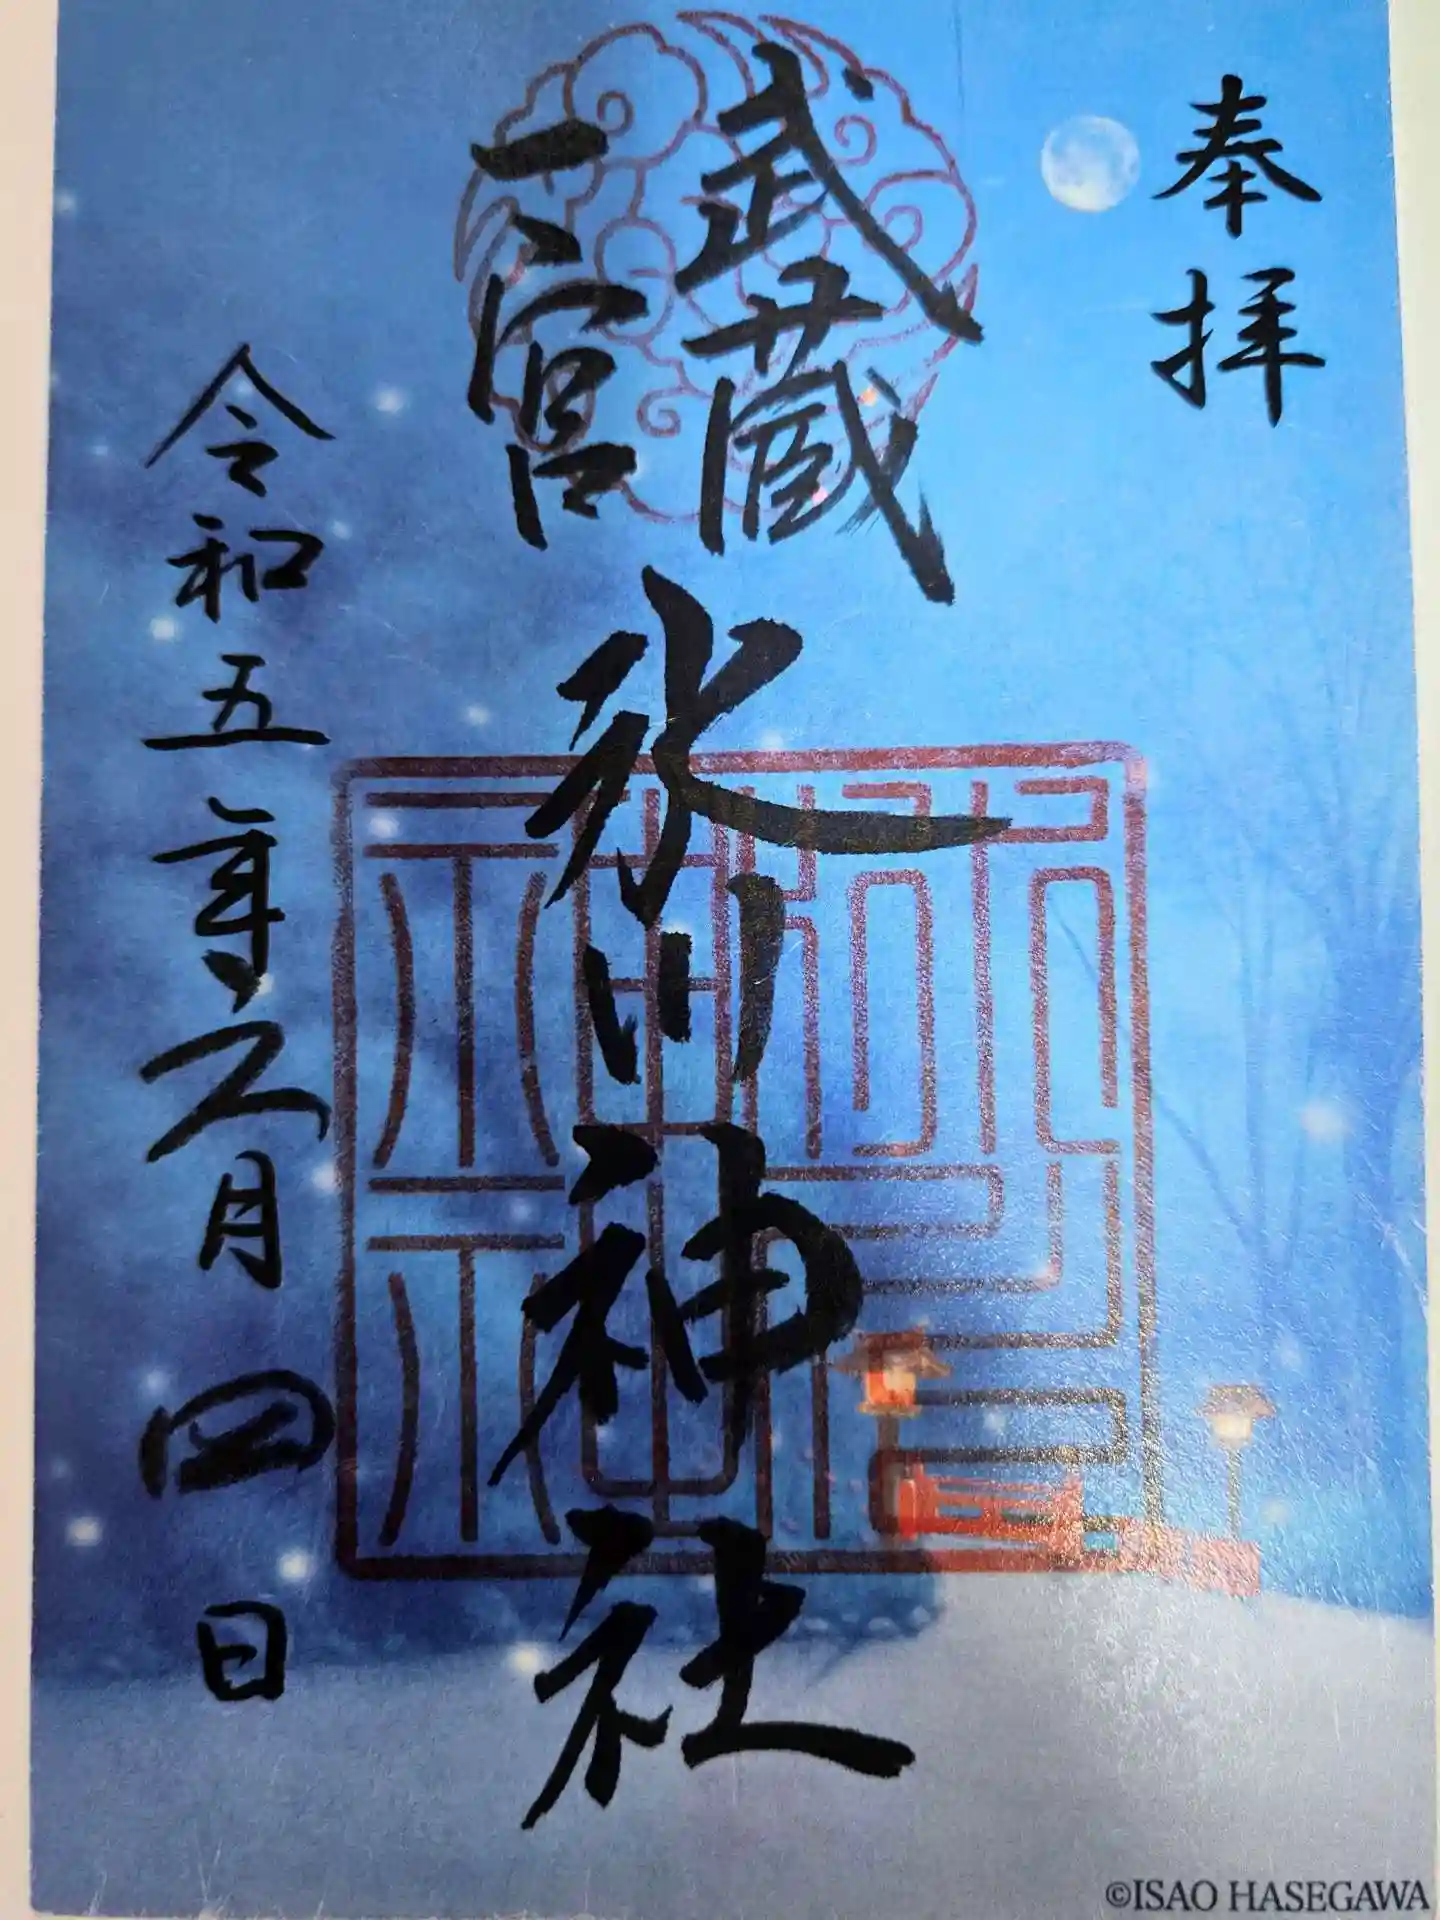 奉拝
武蔵
一宮
氷川神社
令和五年六月四日
©ISAO HASEGAWA